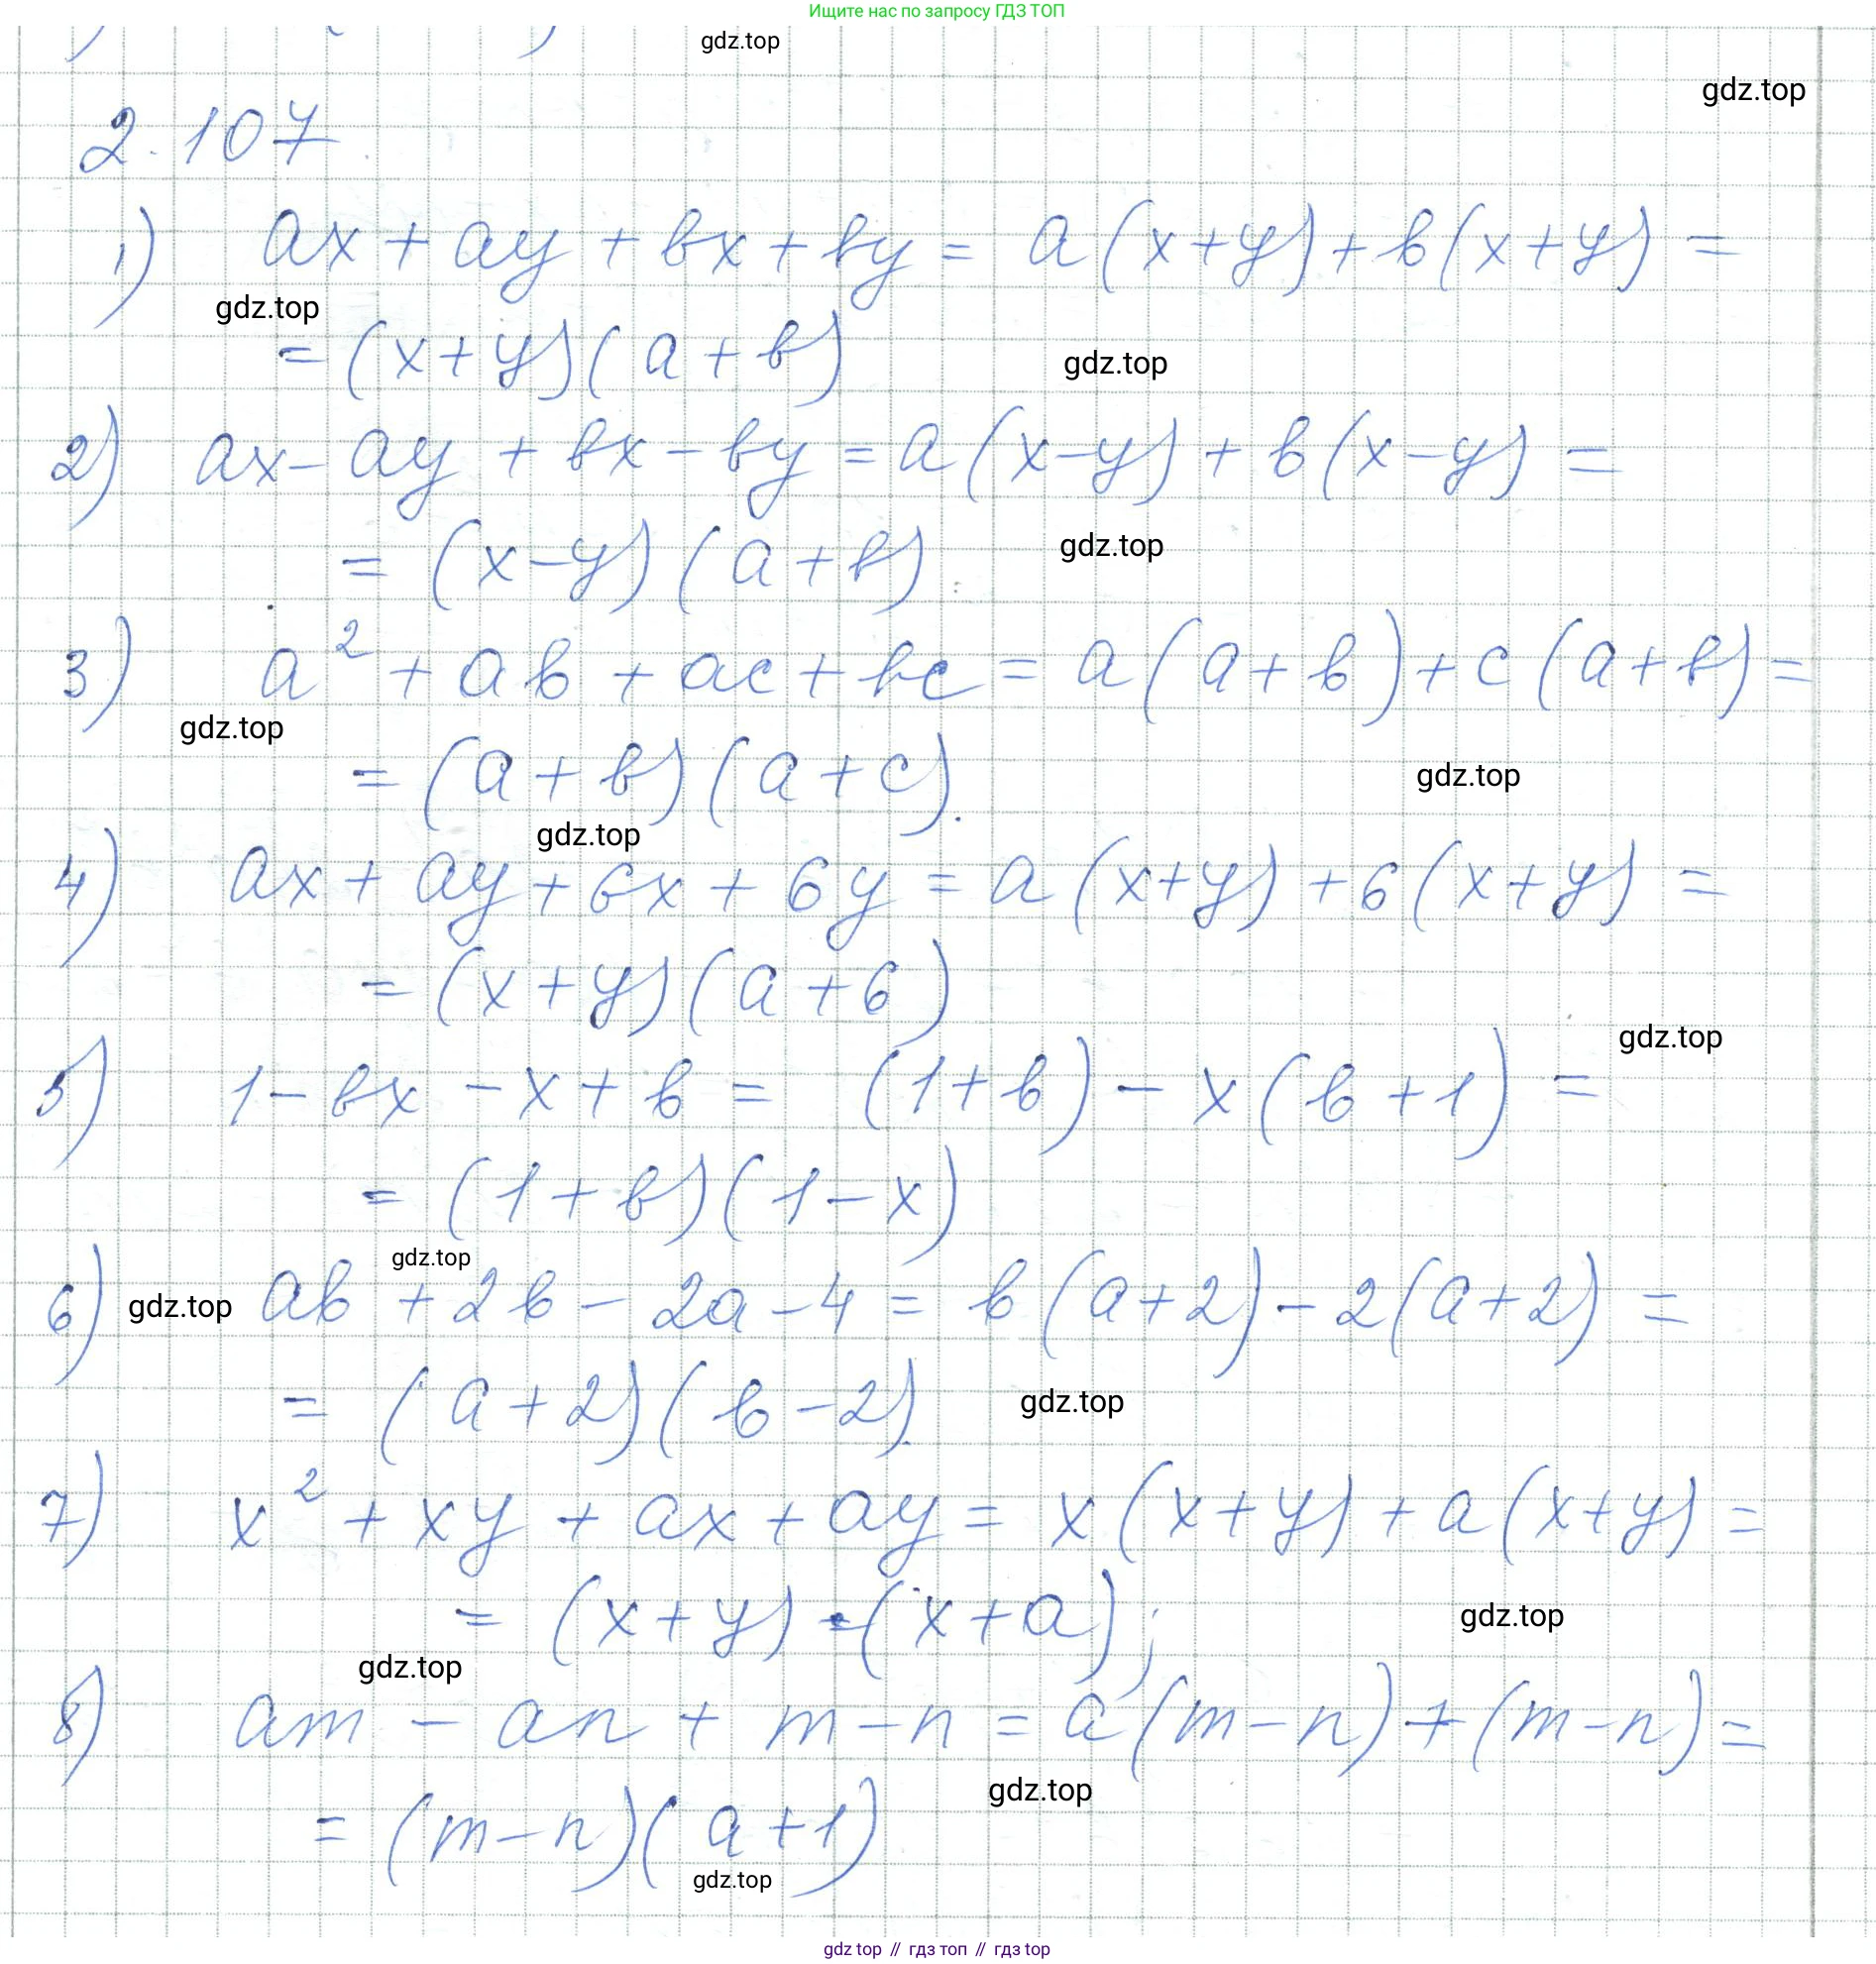 Ищите нас по запросу ГДЗ ТОП
gdz.top
gdz.top
2.107
1) ax + ay + bx + by = a(x+y) + b(x+y) =
gdz.top
= (x+y)(a+b)
gdz.top
2) ax - ay + bx - by = a(x-y) + b(x-y) =
= (x-y)(a+b)
gdz.top
3) a² + ab + ac + bc = a(a+b) + c(a+b) =
gdz.top
= (a+b)(a+c).
gdz.top
gdz.top
4) ax + ay + 6x + 6y = a(x+y) + 6(x+y) =
= (x+y)(a+6)
gdz.top
5) 1 - bx - x + b = (1+b) - x(b+1) =
= (1+b)(1-x)
gdz.top
6) gdz.top ab + 2b - 2a - 4 = b(a+2) - 2(a+2) =
= (a+2)(b-2).
gdz.top
7) x² + xy + ax + ay = x(x+y) + a(x+y) =
= (x+y)·(x+a);
gdz.top
gdz.top
8) am - an + m - n = a(m-n) + (m-n) =
gdz.top
= (m-n)(a+1)
gdz.top
gdz top // гдз топ // gdz top